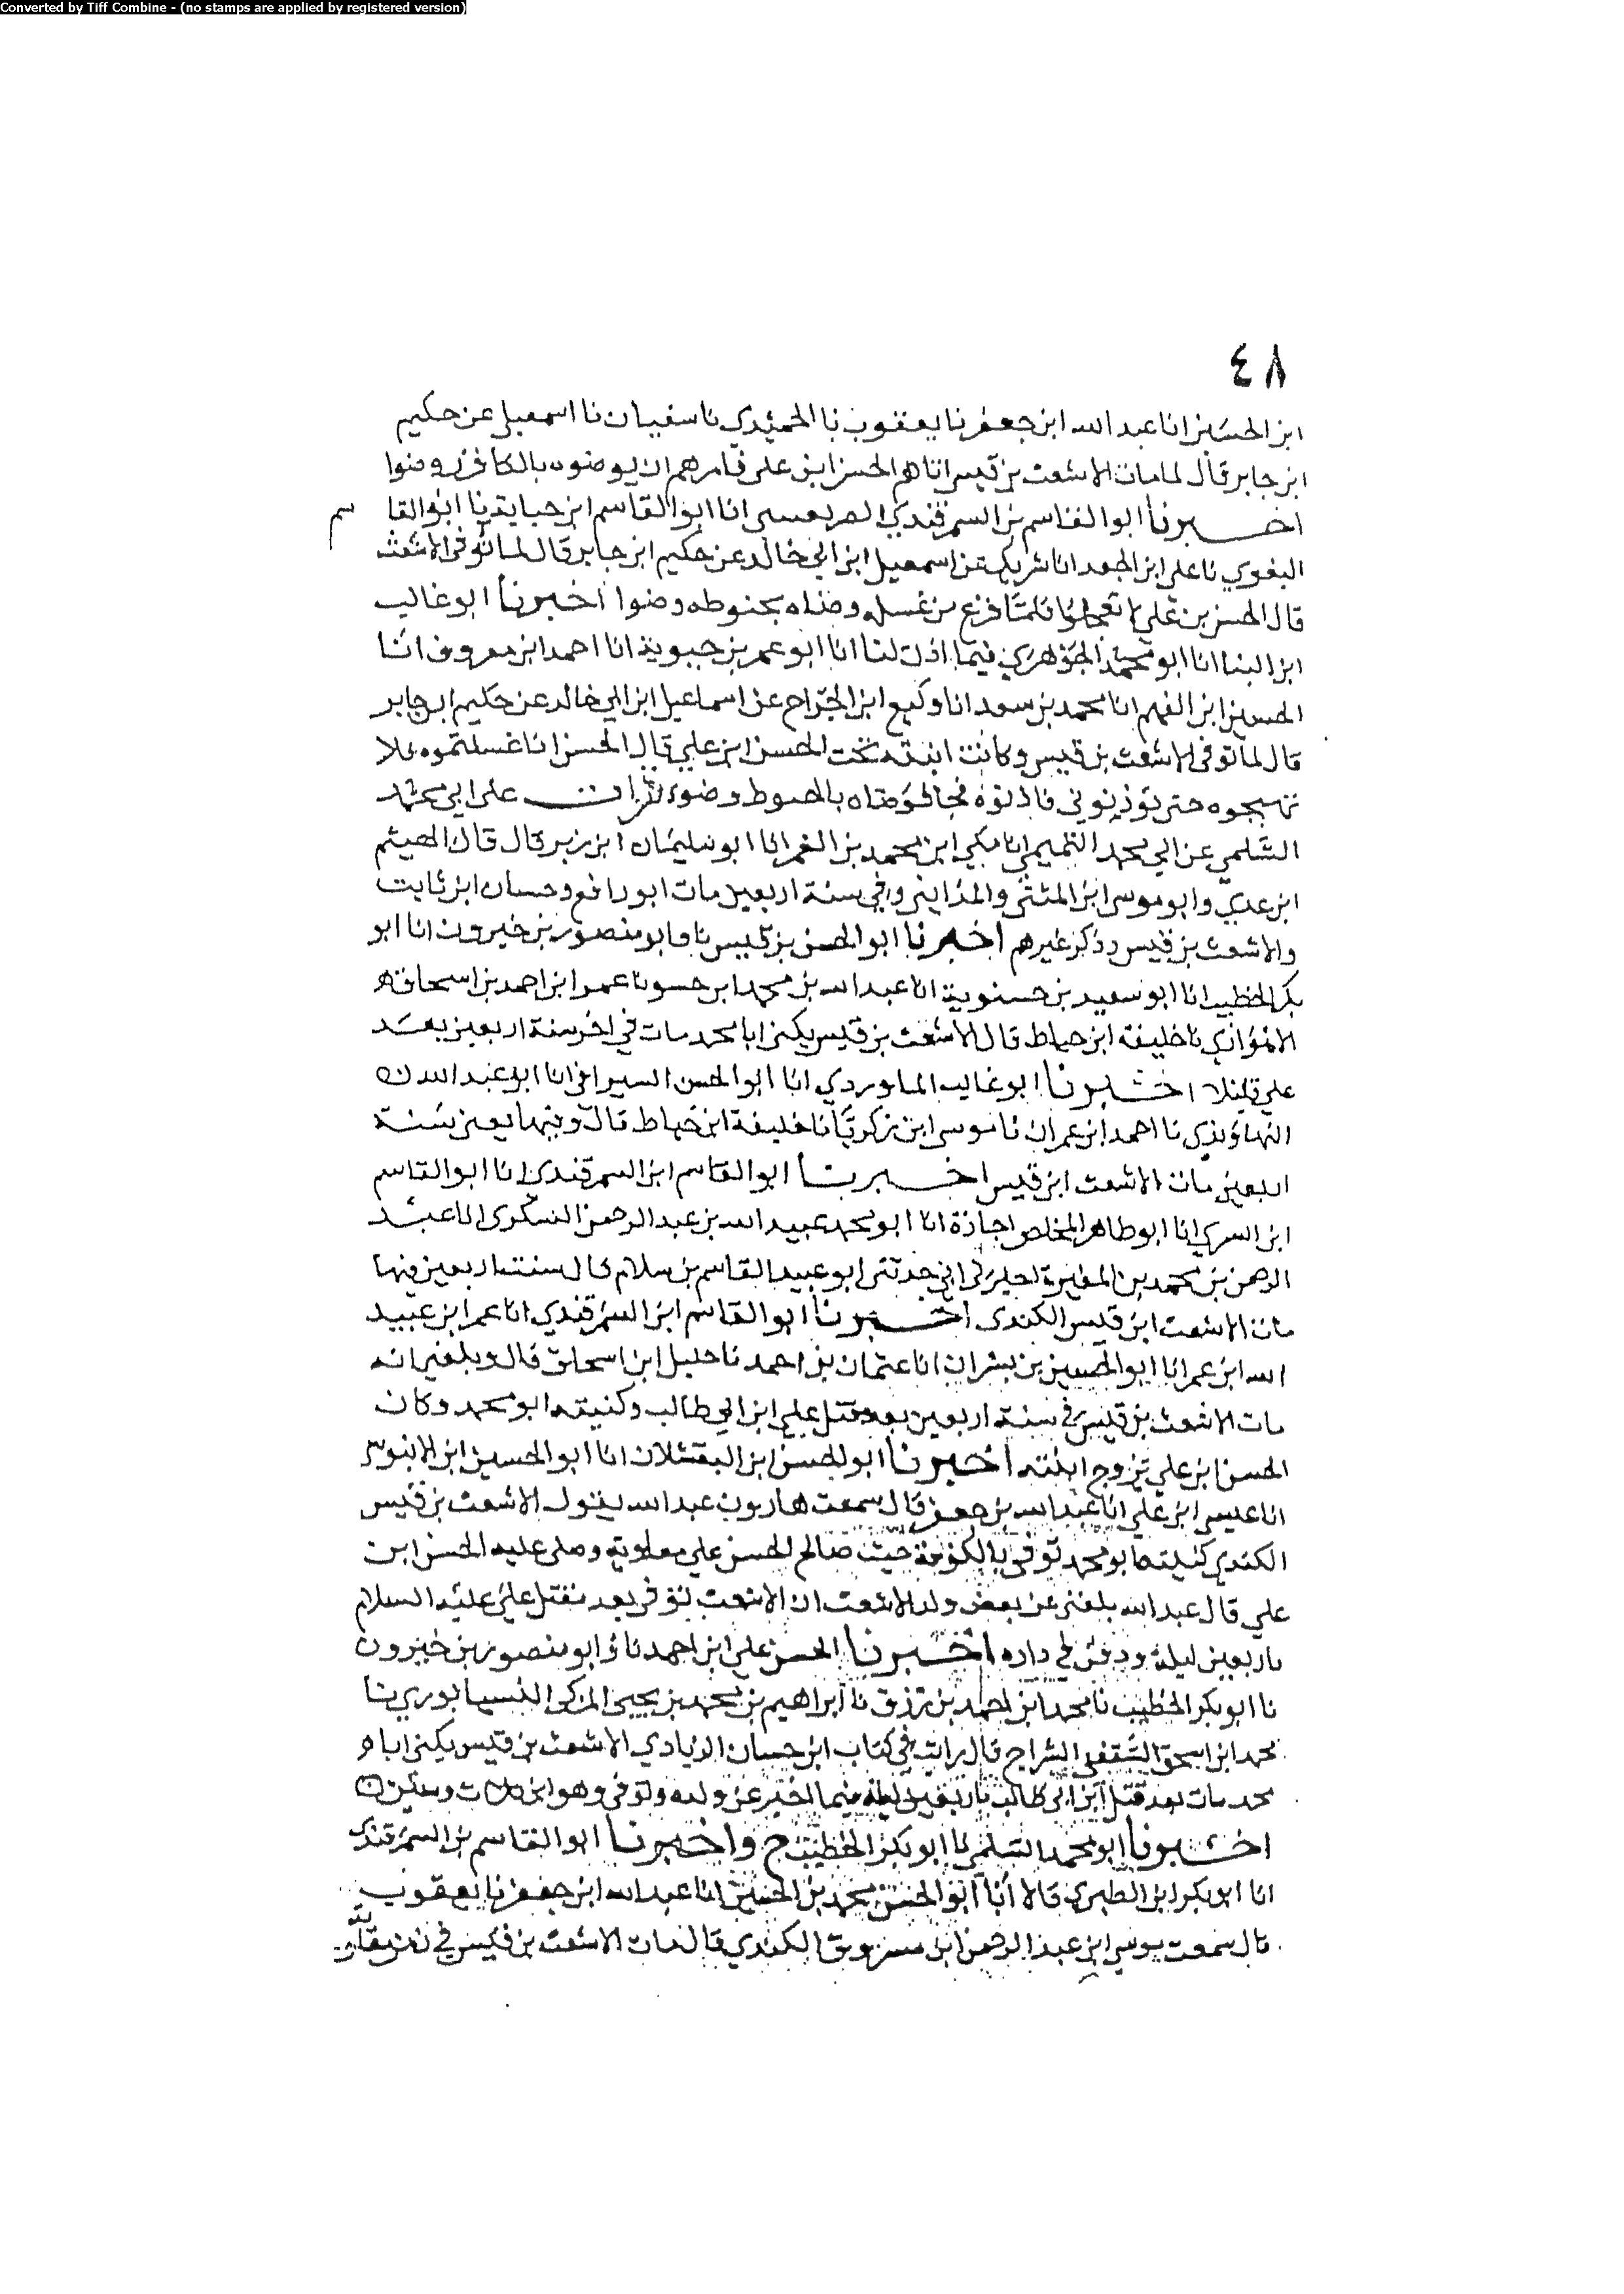 Converted by Tiff Combine - (no stamps are applied by registered version)
٤٨
ابن الحسين انا عبد الله ابن جعفر نا يعقوب نا الحميدي نا سفيان نا اسمعيل عن حكيم
ابن جابر قال لما مات الاشعث بن قيس اتاهم الحسن ابن علي فامرهم ان يوضوه بالكافور وضوا
اخبرنا ابو القاسم بن السمرقندي انا ابو القاسم ابن حبابة نا ابو القاسم
البغوي نا علي ابن الجعد انا شريك عن اسمعيل ابن ابي خالد عن حكيم ابن جابر قال لما توفى الاشعث
قال الحسن بن علي لا تعجلوا فلما فرغ من غسله وضاه بحنوطه وضوا اخبرنا ابو غالب
ابن البنا انا ابو محمد الجوهري فيما اذن لنا انا ابو عمر بن حيوية انا احمد ابن معروف انا
الحسين ابن الفهم انا محمد بن سعد انا وكيع ابن الجراح عن اسماعيل ابن ابي خالد عن حكيم ابن جابر
قال لما توفى الاشعث بن قيس وكانت ابنته تحت الحسن ابن علي قال الحسن اذا غسلتموه فلا
تهيجوه حتى توذنوني فاذنوه فجا فوضاه بالحنوط وضوء قرات على ابي محمد
السلمي عن ابي محمد التميمي انا مكي ابن محمد بن الغمر انا ابو سليمان ابن زبر قال قال الهيثم
ابن عدي وابو موسى ابن المثنى والمدايني وفي سنة اربعين مات ابو رافع وحسان ابن ثابت
والاشعث بن قيس وذكر غيرهم اخبرنا ابو الحسن بن قبيس نا وابو منصور بن خيرون انا ابو
بكر الخطيب انا ابو سعيد بن حسنوية انا عبد الله بن محمد ابن جعفر نا عمر ابن احمد بن اسحاق
الاهوازي نا خليفة ابن خياط قال الاشعث بن قيس يكنى ابا محمد مات في اخر سنة اربعين بعد
علي قليلا اخبرنا ابو غالب الماوردي انا ابو الحسن السيرافي انا ابو عبد الله
النهاوندي نا احمد ابن عمران نا موسى ابن زكريا نا خليفة ابن خياط قال وفيها يعني سنة
اربعين مات الاشعث ابن قيس اخبرنا ابو القاسم ابن السمرقندي انا ابو القاسم
ابن السري انا ابو طاهر المخلص اجازة انا ابو محمد عبيد الله بن عبد الرحمن السكري انا عبد
الرحمن بن محمد بن المغيرة اخبرني ابي حدثني ابو عبيد القاسم بن سلام قال سنة اربعين فيها
مات الاشعث ابن قيس الكندي اخبرنا ابو القاسم ابن السمرقندي انا عمر ابن عبيد
الله ابن عمر انا ابو الحسين بن بشران انا عثمان بن احمد نا حنبل ابن اسحاق قال وبلغني انه
مات الاشعث بن قيس في سنة اربعين بعد مقتل علي ابن ابي طالب وكنيته ابو محمد وكان
الحسن ابن علي تزوج ابنته اخبرنا ابو الحسن ابن البقشلان انا ابو الحسين ابن الابنوسي
انا عيسى ابن علي انا عبد الله بن جعفر قال سمعت هارون عبد الله يقول الاشعث بن قيس
الكندي كنيته ابو محمد توفى بالكوفة حيث صالح الحسن علي معاوية وصلى عليه الحسن ابن
علي قال عبد الله بلغني عن بعض ولد الاشعث ان الاشعث توفى بعد مقتل علي عليه السلام
باربعين ليلة ودفن في داره اخبرنا الحسن علي ابن احمد نا وابو منصور بن خيرون
نا ابو بكر الخطيب نا محمد ابن احمد بن رزق نا ابراهيم بن محمد بن يحيى المزكي النيسابوري نا
محمد ابن اسحق الثقفي السراج قال رايت في كتاب ابن حسان الزيادي الاشعث بن قيس يكنى ابا
محمد مات بعد قتل ابن ابي طالب باربعين ليلة فيما اخبر عن ولده وتوفى وهو ابن ثلاث وستين
اخبرنا ابو محمد السلمي نا ابو بكر الخطيب ح واخبرنا ابو القاسم بن السمرقندي
انا ابو بكر ابن الطبري قالا انا ابو الحسين محمد بن الحسين انا عبد الله ابن جعفر نا يعقوب
قال سمعت يوسف ابن عبد الرحمن ابن مسروق الكندي قال مات الاشعث بن قيس في